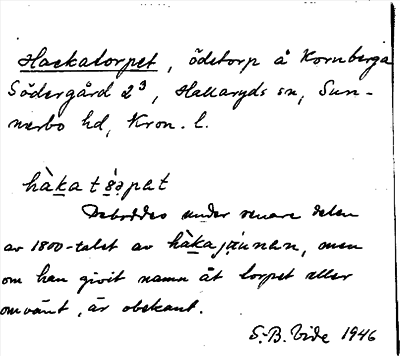 Hackatorpet, ödetorp å Kornberga
Södergård 2³, Hallaryds sn, Sun-
nerbo hd, Kron. l.
hàka t pat
Beboddes under senare delen
av 1800-talet av hàka jnnan, men
om han givit namn åt torpet eller
omvänt, är obekant.
S.-B. Vide 1946